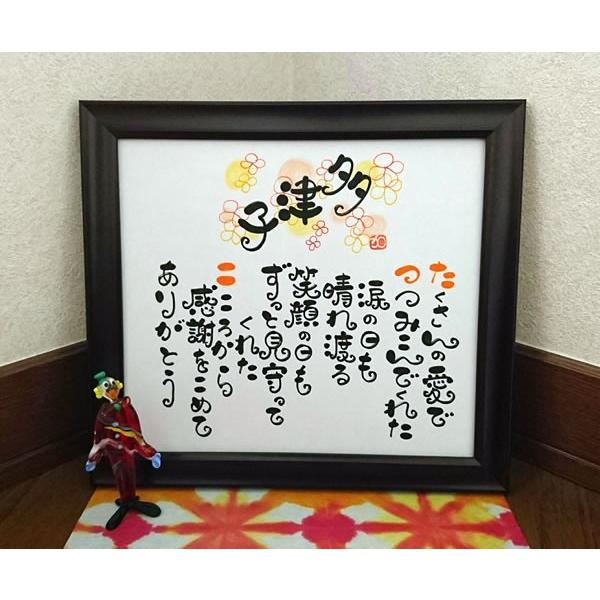 多津子
たくさんの愛で
つつみこんでくれた
涙の日も
晴れ渡る
笑顔の日も
ずっと見守って
くれた
こころから
感謝をこめて
ありがとう